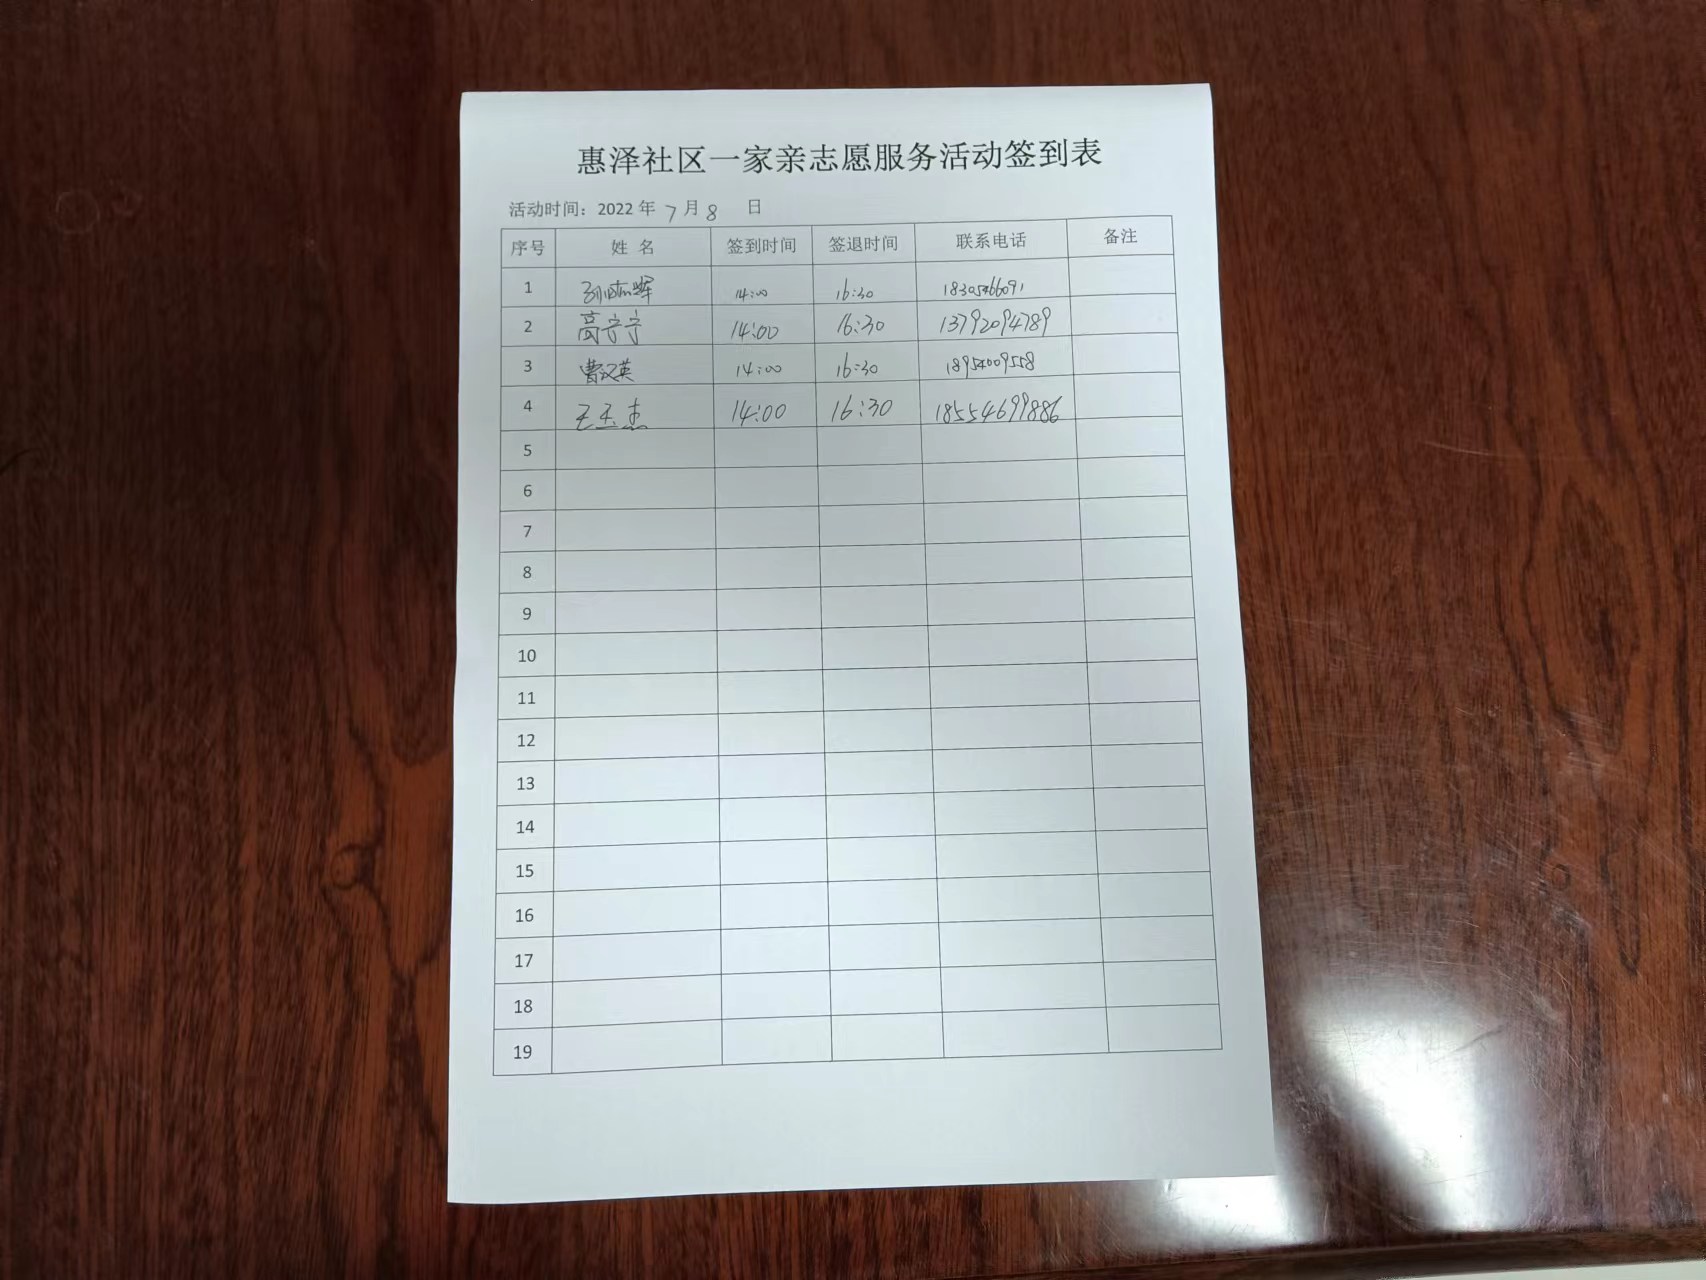 惠泽社区一家亲志愿服务活动签到表
活动时间：2022 年 7 月 8 日
序号 姓 名 签到时间 签退时间 联系电话 备注
1 14:00 16:30 18305466091
2 高宁宁 14:00 16:30 13792094789
3 曹汉英 14:00 16:30 18954009558
4 王玉杰 14:00 16:30 18554699886
5
6
7
8
9
10
11
12
13
14
15
16
17
18
19